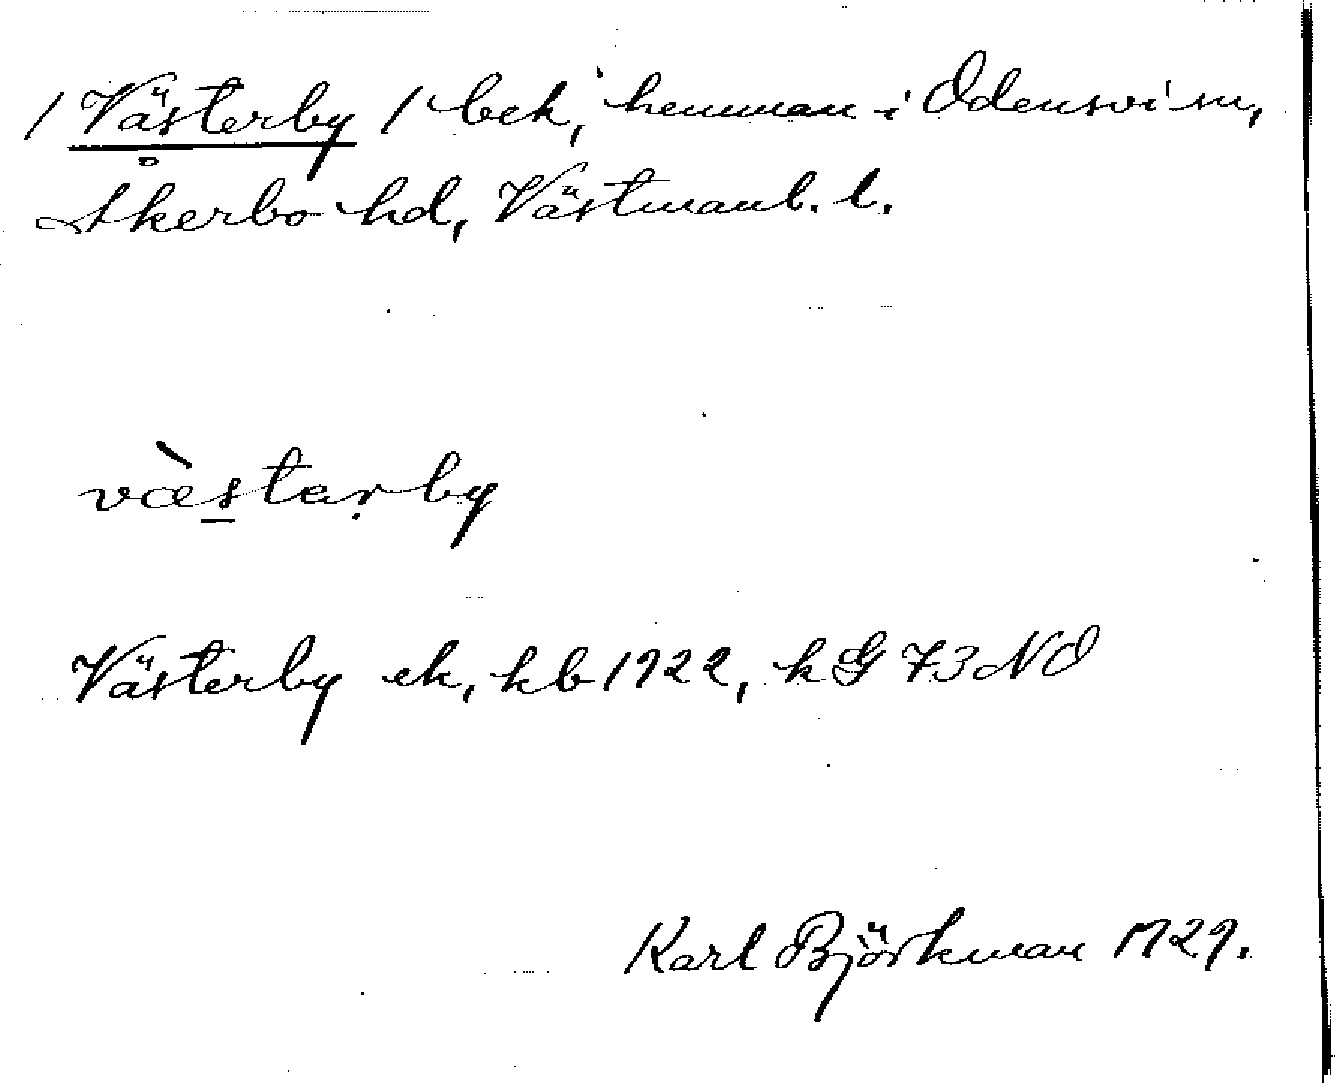 / Västerby / bek, hemman i Odensvi sn,
Åkerbo hd, Västmanl. l.
væ̀starby
Västerby ek, kb 1922, k G 73 NO
Karl Björkman 1929.